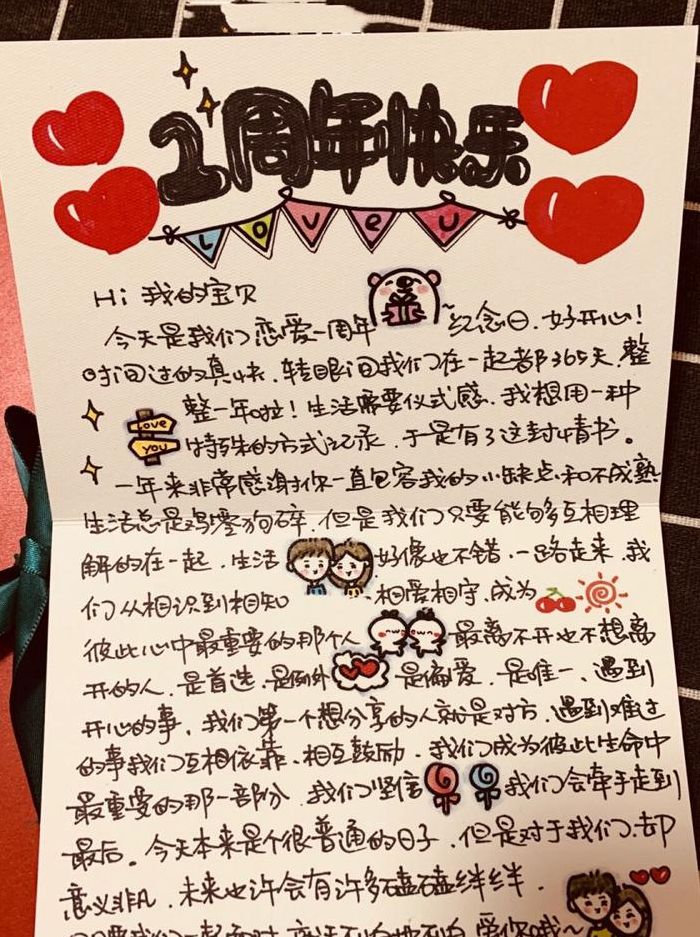 1周年快乐
LOVE U
Hi 我的宝贝
今天是我们恋爱一周年 纪念日，好开心！
时间过的真快，转眼间我们在一起都365天，整
整一年啦！生活需要仪式感，我想用一种
LOVE
YOU
特殊的方式记录，于是有了这封情书。
一年来非常感谢你一直包容我的小缺点和不成熟
生活总是鸡零狗碎，但是我们只要能够互相理
解的在一起，生活 好像也不错，一路走来，我
们从相识到相知 相爱相守，成为
彼此心中最重要的那个人 最离不开也不想离
开的人，是首选，是例外 是偏爱，是唯一、遇到
开心的事，我们第一个想分享的人就是对方，遇到难过
的事我们互相依靠，相互鼓励，我们成为彼此生命中
最重要的那一部分，我们坚信 我们会牵手走到
最后。今天本来是个很普通的日子，但是对于我们，却
意义非凡，未来也许会有许多磕磕绊绊，
我们一起面对 爱你哦～